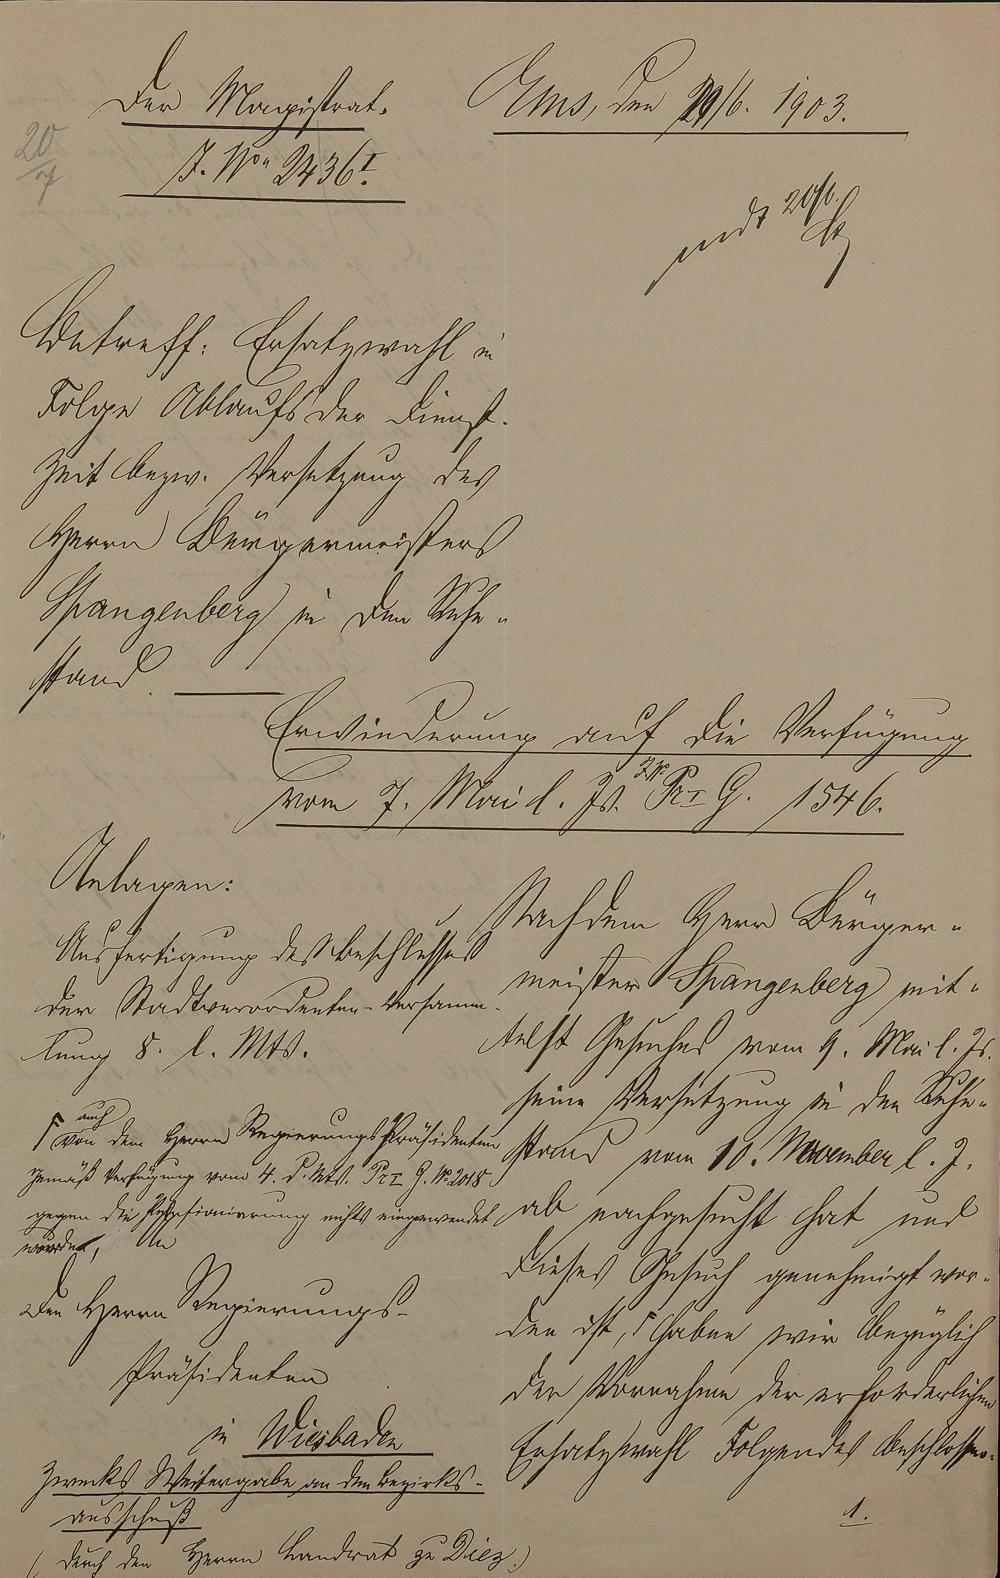 Der Magistrat.
J. No 2436 I.
20/7
Ems, den 29/6. 1903.
mdt 20/6.
Betreff: Ersatzwahl in
Folge Ablaufs der Dienst-
zeit bezw. Versetzung des
Herrn Bürgermeisters
Spangenberg in den Ruhe-
stand.
Erwiederung auf die Verfügung
vom 7. Mai l. Js. J.No Pr I G. 1546.
Anlagen:
Ausfertigung des Beschlusses
der Stadtverordneten-Versamm-
lung 8. l. Mts.
Γ auch
von dem Herrn Regierungs Präsidenten
gemäß Verfügung vom 4. d. Mts. Pr I G. No 2018
gegen die Pensionierung nichts eingewendet
worden,
An
den Herrn Regierungs-
Präsidenten
in Wiesbaden
zwecks Weitergabe an den Bezirks-
ausschuß
(durch den Herrn Landrat zu Diez.)
Nachdem Herr Bürger-
meister Spangenberg mit-
telst Gesuches vom 9. Mai l. Js.
seine Versetzung in den Ruhe-
stand vom 10. November l. J.
ab nachgesucht hat und
dieses Gesuch genehmigt wor-
den ist, Γ haben wir bezüglich
der Vornahme der erforderlichen
Ersatzwahl Folgendes beschlossen.
1.